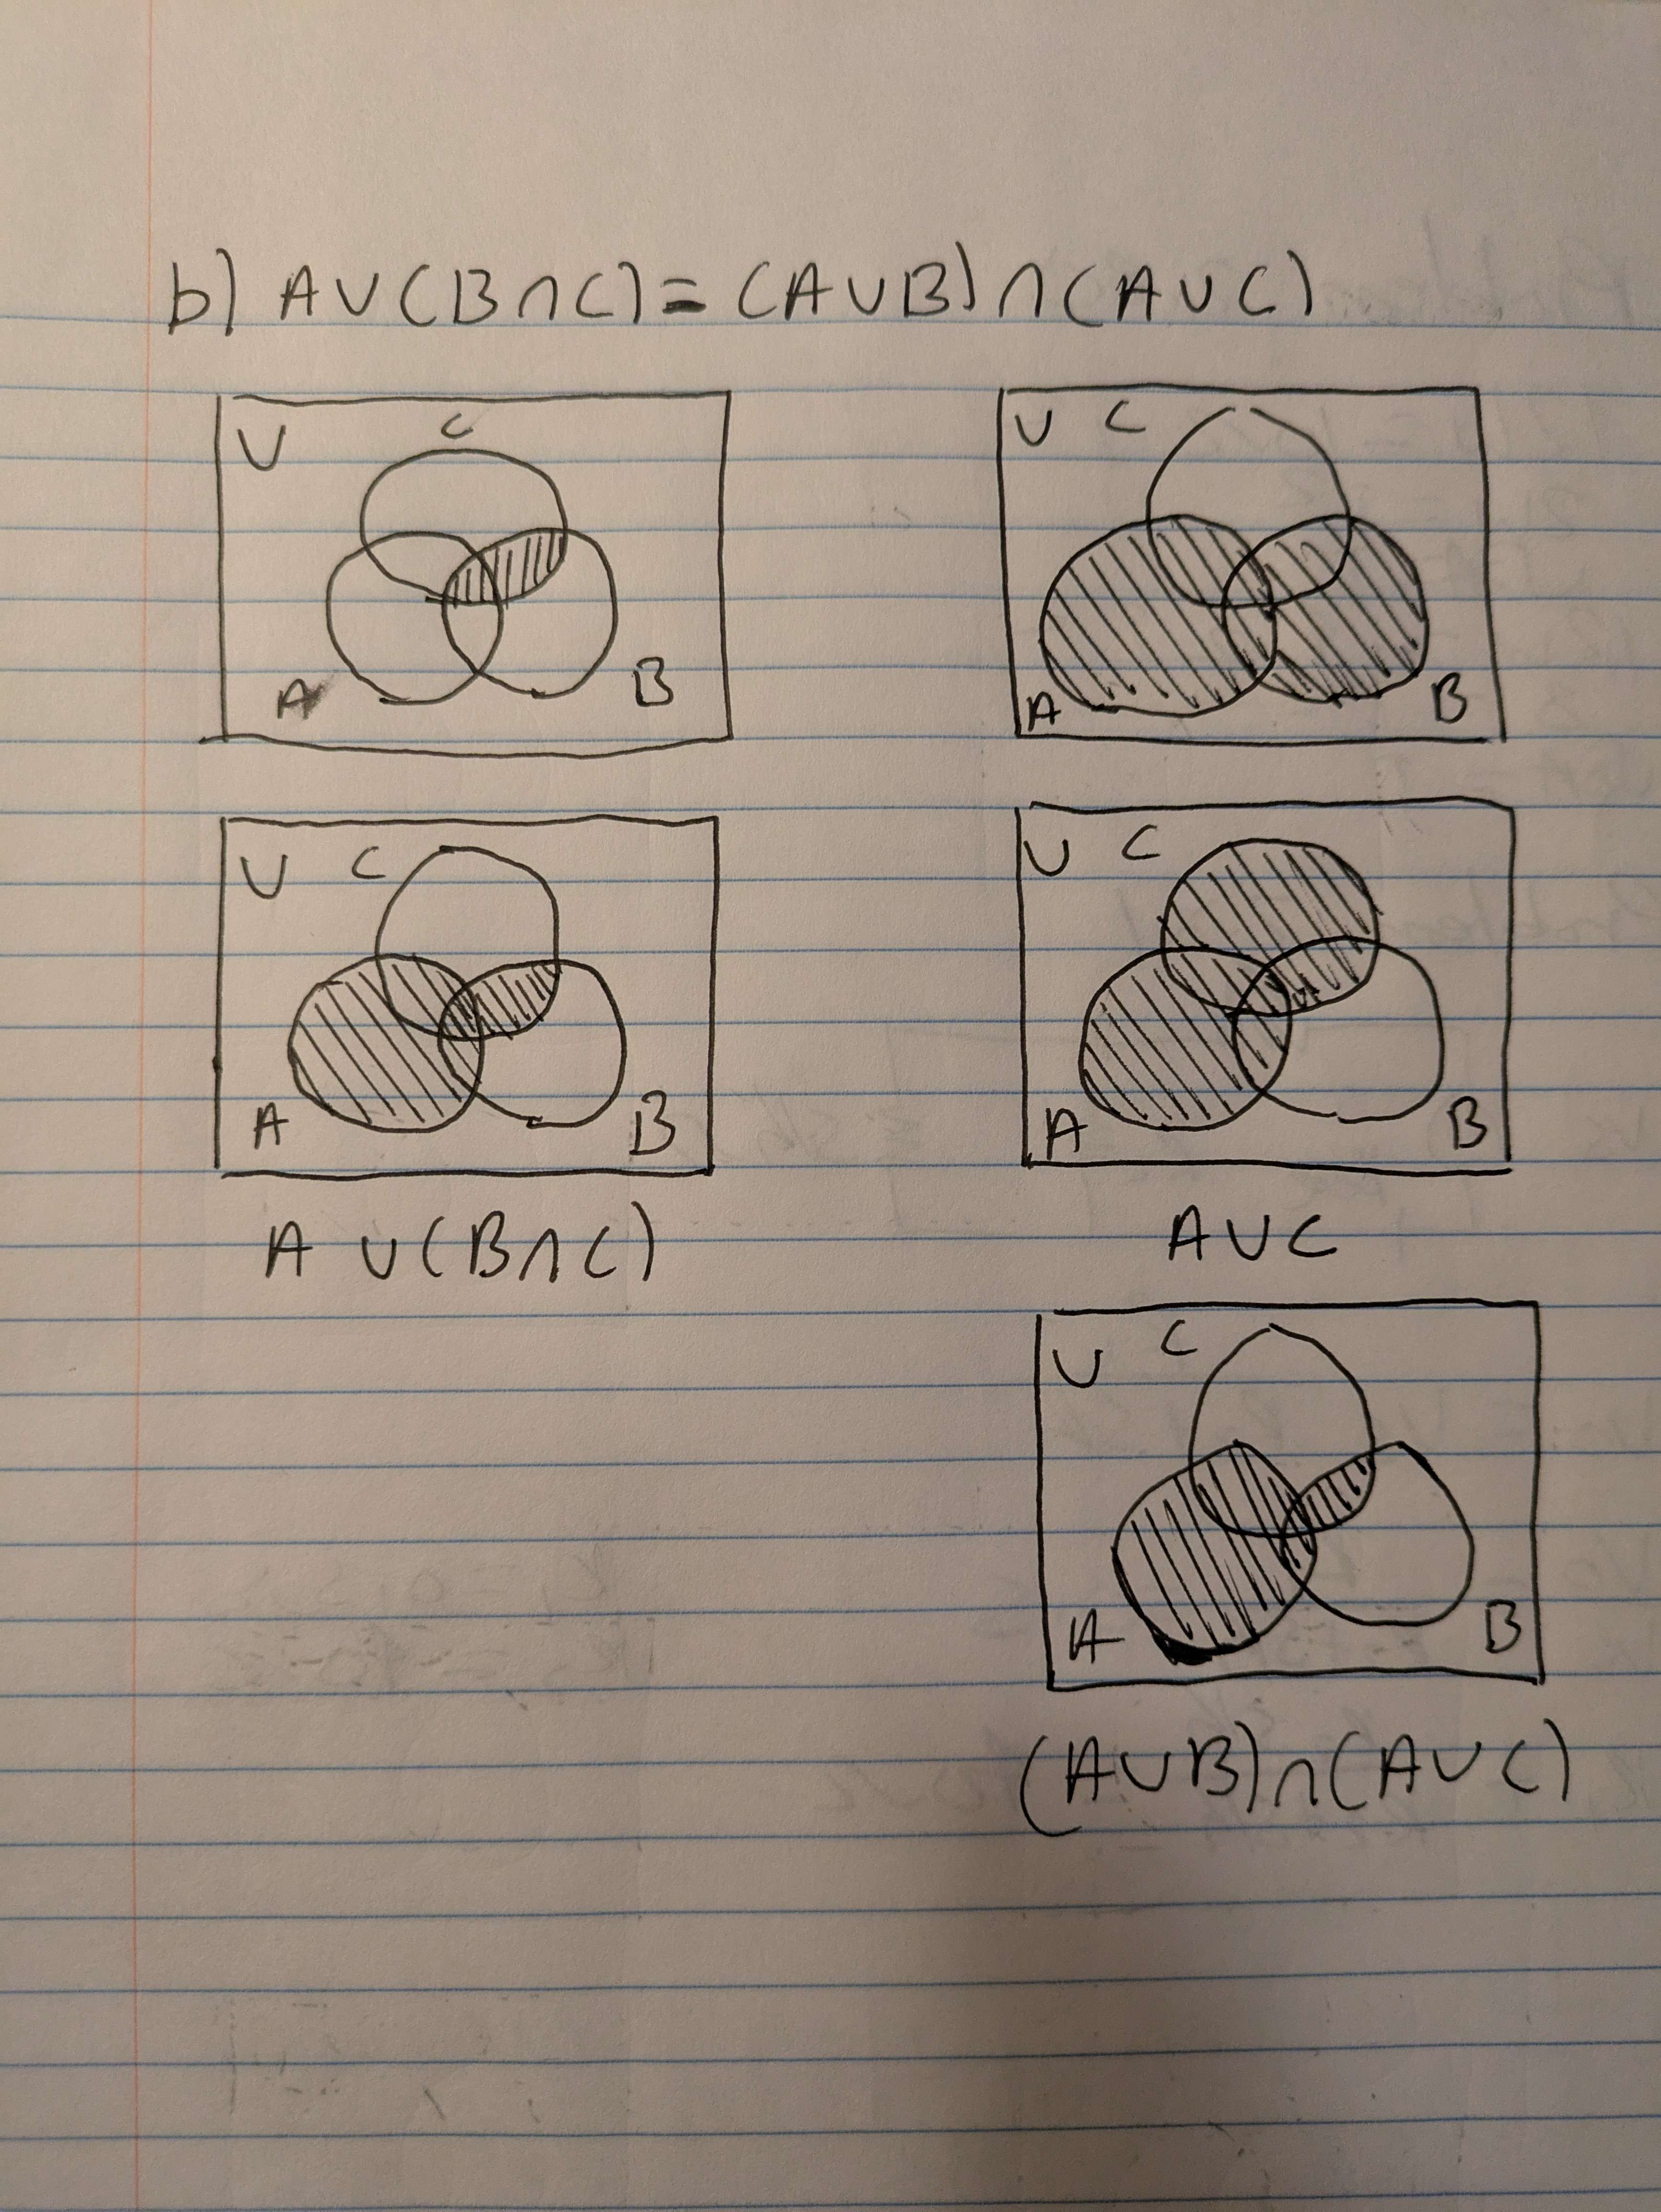 b) A∪(B∩C)=(A∪B)∩(A∪C)
U C
A B
U C
A B
U C
A B
A ∪(B∩C)
U C
A B
A∪C
U C
A B
(A∪B)∩(A∪C)